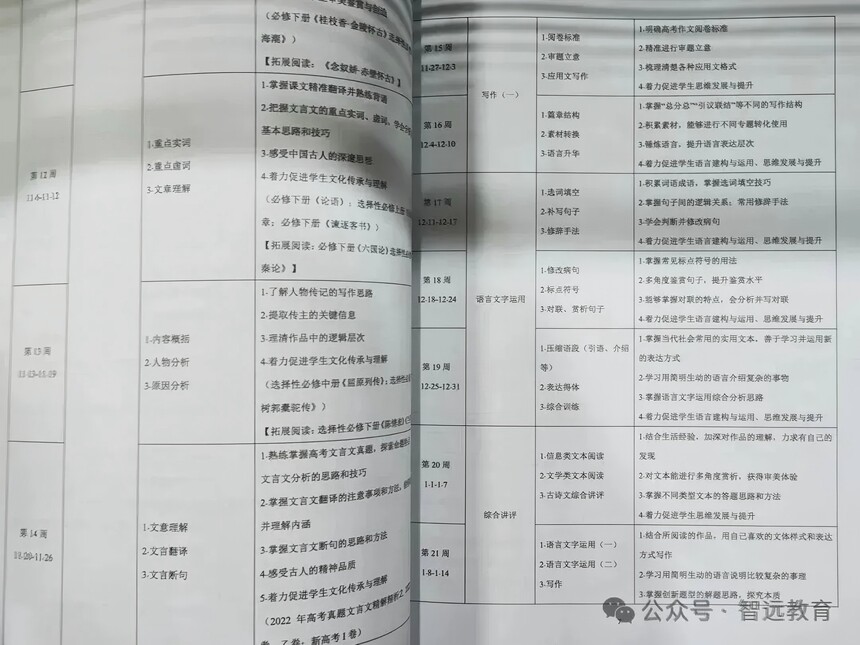 （必修下册《桂枝香·金陵怀古》选择性
海潮》）
【拓展阅读：《念奴娇·赤壁怀古》】
第 12 周
11.6-11-12
1-重点实词
2-重点虚词
3-文章理解
1-掌握课文精准翻译并熟练背诵
2-把握文言文的重点实词、虚词，学会
基本思路和技巧
3-感受中国古人的深邃思想
4-着力促进学生文化传承与理解
（必修下册《论语》；选择性必修上册
章；必修下册《谏逐客书》）
【拓展阅读：必修下册《六国论》选择性
秦论》】
第 13 周
11-13-11-19
1-内容概括
2-人物分析
3-原因分析
1-了解人物传记的写作思路
2-提取传主的关键信息
3-理清作品中的逻辑层次
4-着力促进学生文化传承与理解
（选择性必修中册《屈原列传》；选择性
树郭橐驼传》）
【拓展阅读：选择性必修下册
第 14 周
11-20-11-26
1-文意理解
2-文言翻译
3-文言断句
1-熟练掌握高考文言文真题，探索命题
文言文分析的思路和技巧
2-掌握文言文翻译的注意事项和方法，
并理解内涵
3-掌握文言文断句的思路和方法
4-感受古人的精神品质
5-着力促进学生文化传承与理解
（2022 年高考真题文言文精解精析
卷、乙卷；新高考 I 卷）
第 15 周
11-27-12-3
写作（一）
1-阅卷标准
2-审题立意
3-应用文写作
1-明确高考作文阅卷标准
2-精准进行审题立意
3-梳理清楚各种应用文格式
4-着力促进学生思维发展与提升
第 16 周
12.4-12-10
1-篇章结构
2-素材转换
3-语言升华
1-掌握“总分总”“引议联结”等不同的写作结构
2-积累素材，能够进行不同专题转化使用
3-锤炼语言，提升语言表达层次
4-着力促进学生语言建构与运用、思维发展与提升
第 17 周
12-11-12-17
语言文字运用
1-选词填空
2-补写句子
3-修辞手法
1-积累词语成语，掌握选词填空技巧
2-掌握句子间的逻辑关系；常用修辞手法
3-学会判断并修改病句
4-着力促进学生语言建构与运用、思维发展与提升
第 18 周
12-18-12-24
1-修改病句
2-标点符号
3-对联、赏析句子
1-掌握常见标点符号的用法
2-多角度鉴赏句子，提升鉴赏水平
3-能够掌握对联的特点，会分析并写对联
4-着力促进学生语言建构与运用、思维发展与提升
第 19 周
12-25-12-31
1-压缩语段（引语、介绍
等）
2-表达得体
3-综合训练
1-掌握当代社会常用的实用文本，善于学习并运用新
的表达方式
2-学习用简明生动的语言介绍复杂的事物
3-掌握语言文字运用综合分析思路
4-着力促进学生语言建构与运用、思维发展与提升
第 20 周
1-1-1-7
综合讲评
1-信息类文本阅读
2-文学类文本阅读
3-古诗文综合讲评
1-结合生活经验，加深对作品的理解，力求有自己的
发现
2-对文本能进行多角度赏析，获得审美体验
3-掌握不同类型文本的答题思路和方法
4-着力促进学生思维发展与提升
第 21 周
1-8-1-14
1-语言文字运用（一）
2-语言文字运用（二）
3-写作
1-结合所阅读的作品，用自己喜欢的文体样式和表达
方式写作
2-学习用简明生动的语言说明比较复杂的事理
3-掌握创新题型的解题思路，探究本质
公众号·智远教育